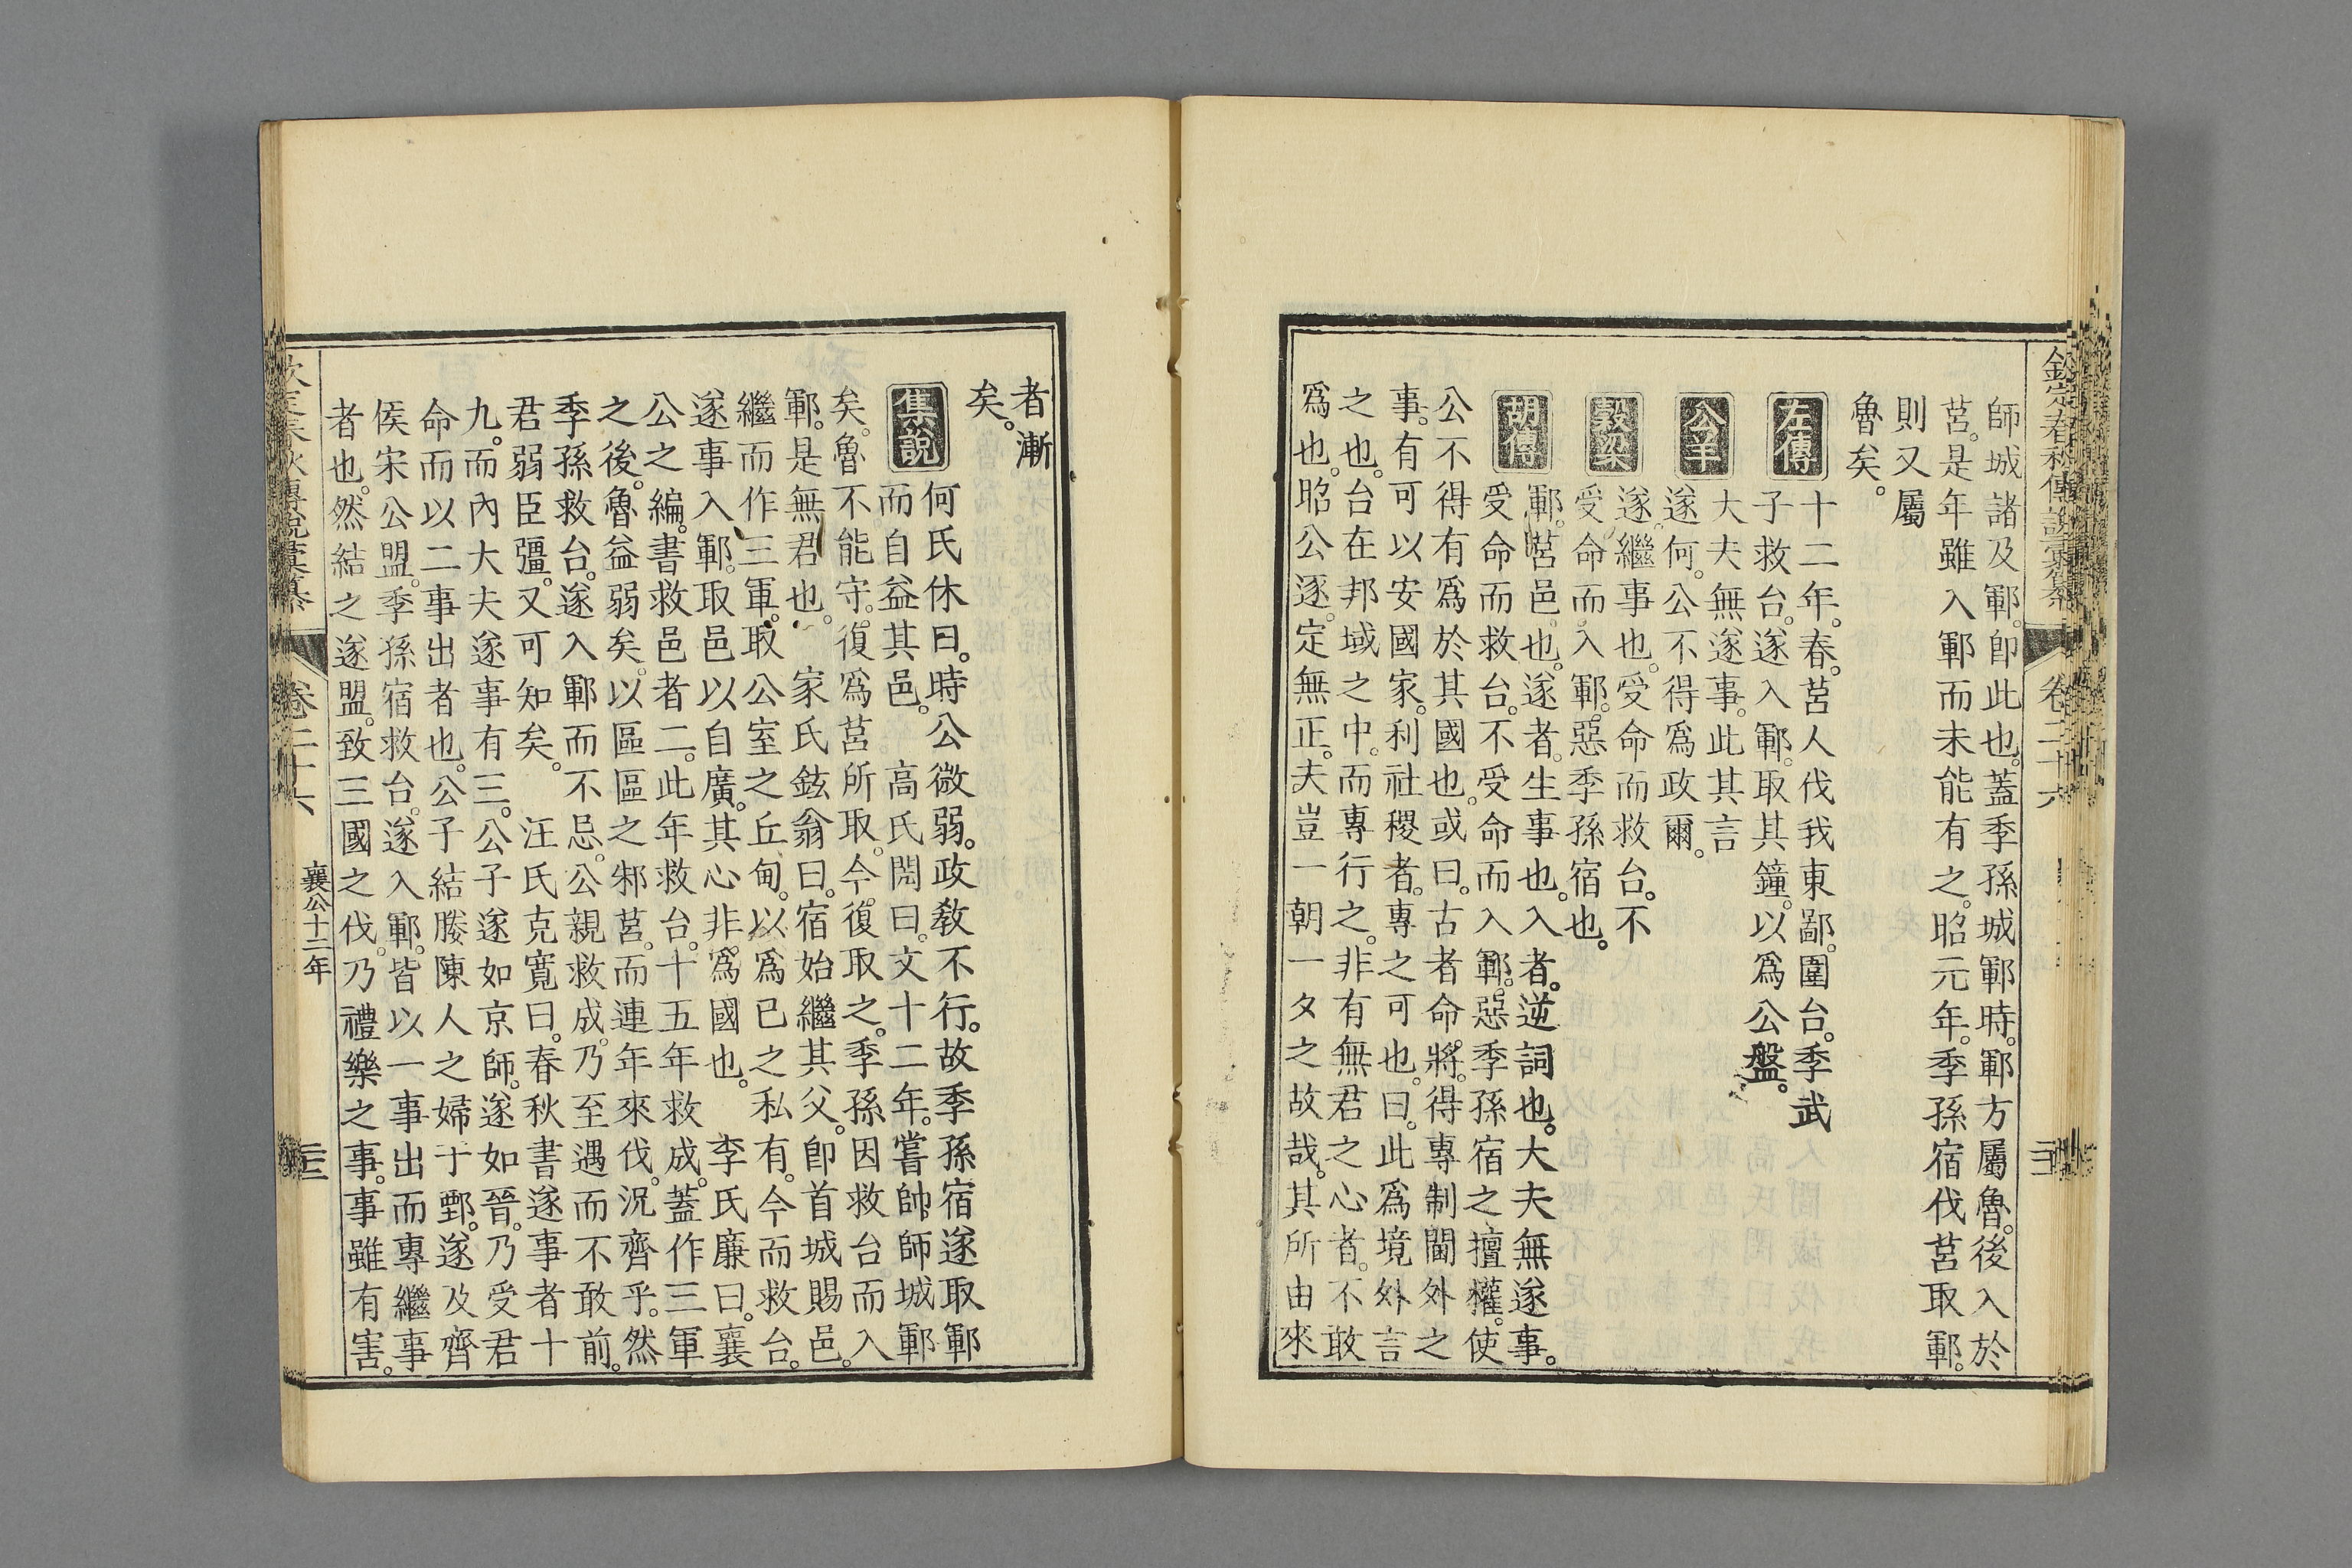 欽定春秋傳說彙纂 卷二十六
師城諸及鄆。即此也。蓋季孫城鄆時。鄆方屬魯。後入於
莒。是年雖入鄆而未能有之。昭元年。季孫宿伐莒取鄆。
則又屬
魯矣。
左傳 十二年。春。莒人伐我東鄙。圍台。季武
子救台。遂入鄆。取其鐘。以爲公盤。
公羊 大夫無遂事。此其言
遂何。公不得爲政爾。
穀梁 遂。繼事也。受命而救台。不
受命而入鄆。惡季孫宿也。
胡傳 鄆。莒邑也。遂者。生事也。入者。逆詞也。大夫無遂事。
受命而救台。不受命而入鄆。惡季孫宿之擅權。使
公不得有爲於其國也。或曰。古者命將。得專制閫外之
事。有可以安國家。利社稷者。專之可也。曰。此爲境外言
之也。台在邦域之中。而專行之。非有無君之心者。不敢
爲也。昭公逐。定無正。夫豈一朝一夕之故哉。其所由來
者漸
矣。
集說 何氏休曰。時公微弱。政教不行。故季孫宿遂取鄆
而自益其邑。 高氏閌曰。文十二年。嘗帥師城鄆
矣。魯不能守。復爲莒所取。今復取之。季孫因救台而入
鄆。是無君也。 家氏鉉翁曰。宿始繼其父。即首城賜邑。
繼而作三軍。取公室之丘甸。以爲已之私有。今而救台。
遂事入鄆。取邑以自廣。其心非爲國也。 李氏廉曰。襄
公之編。書救邑者二。此年救台。十五年救成。蓋作三軍
之後。魯益弱矣。以區區之邾莒。而連年來伐。況齊乎。然
季孫救台。遂入鄆而不忌。公親救成。乃至遇而不敢前。
君弱臣彊。又可知矣。 汪氏克寬曰。春秋書遂事者十
九。而內大夫遂事有三。公子遂如京師。遂如晉。乃受君
命而以二事出者也。公子結媵陳人之婦于鄄。遂及齊
侯宋公盟。季孫宿救台。遂入鄆。皆以一事出而專繼事
者也。然結之遂盟。致三國之伐。乃禮樂之事。事雖有害。
卷二十六 襄公十二年 三